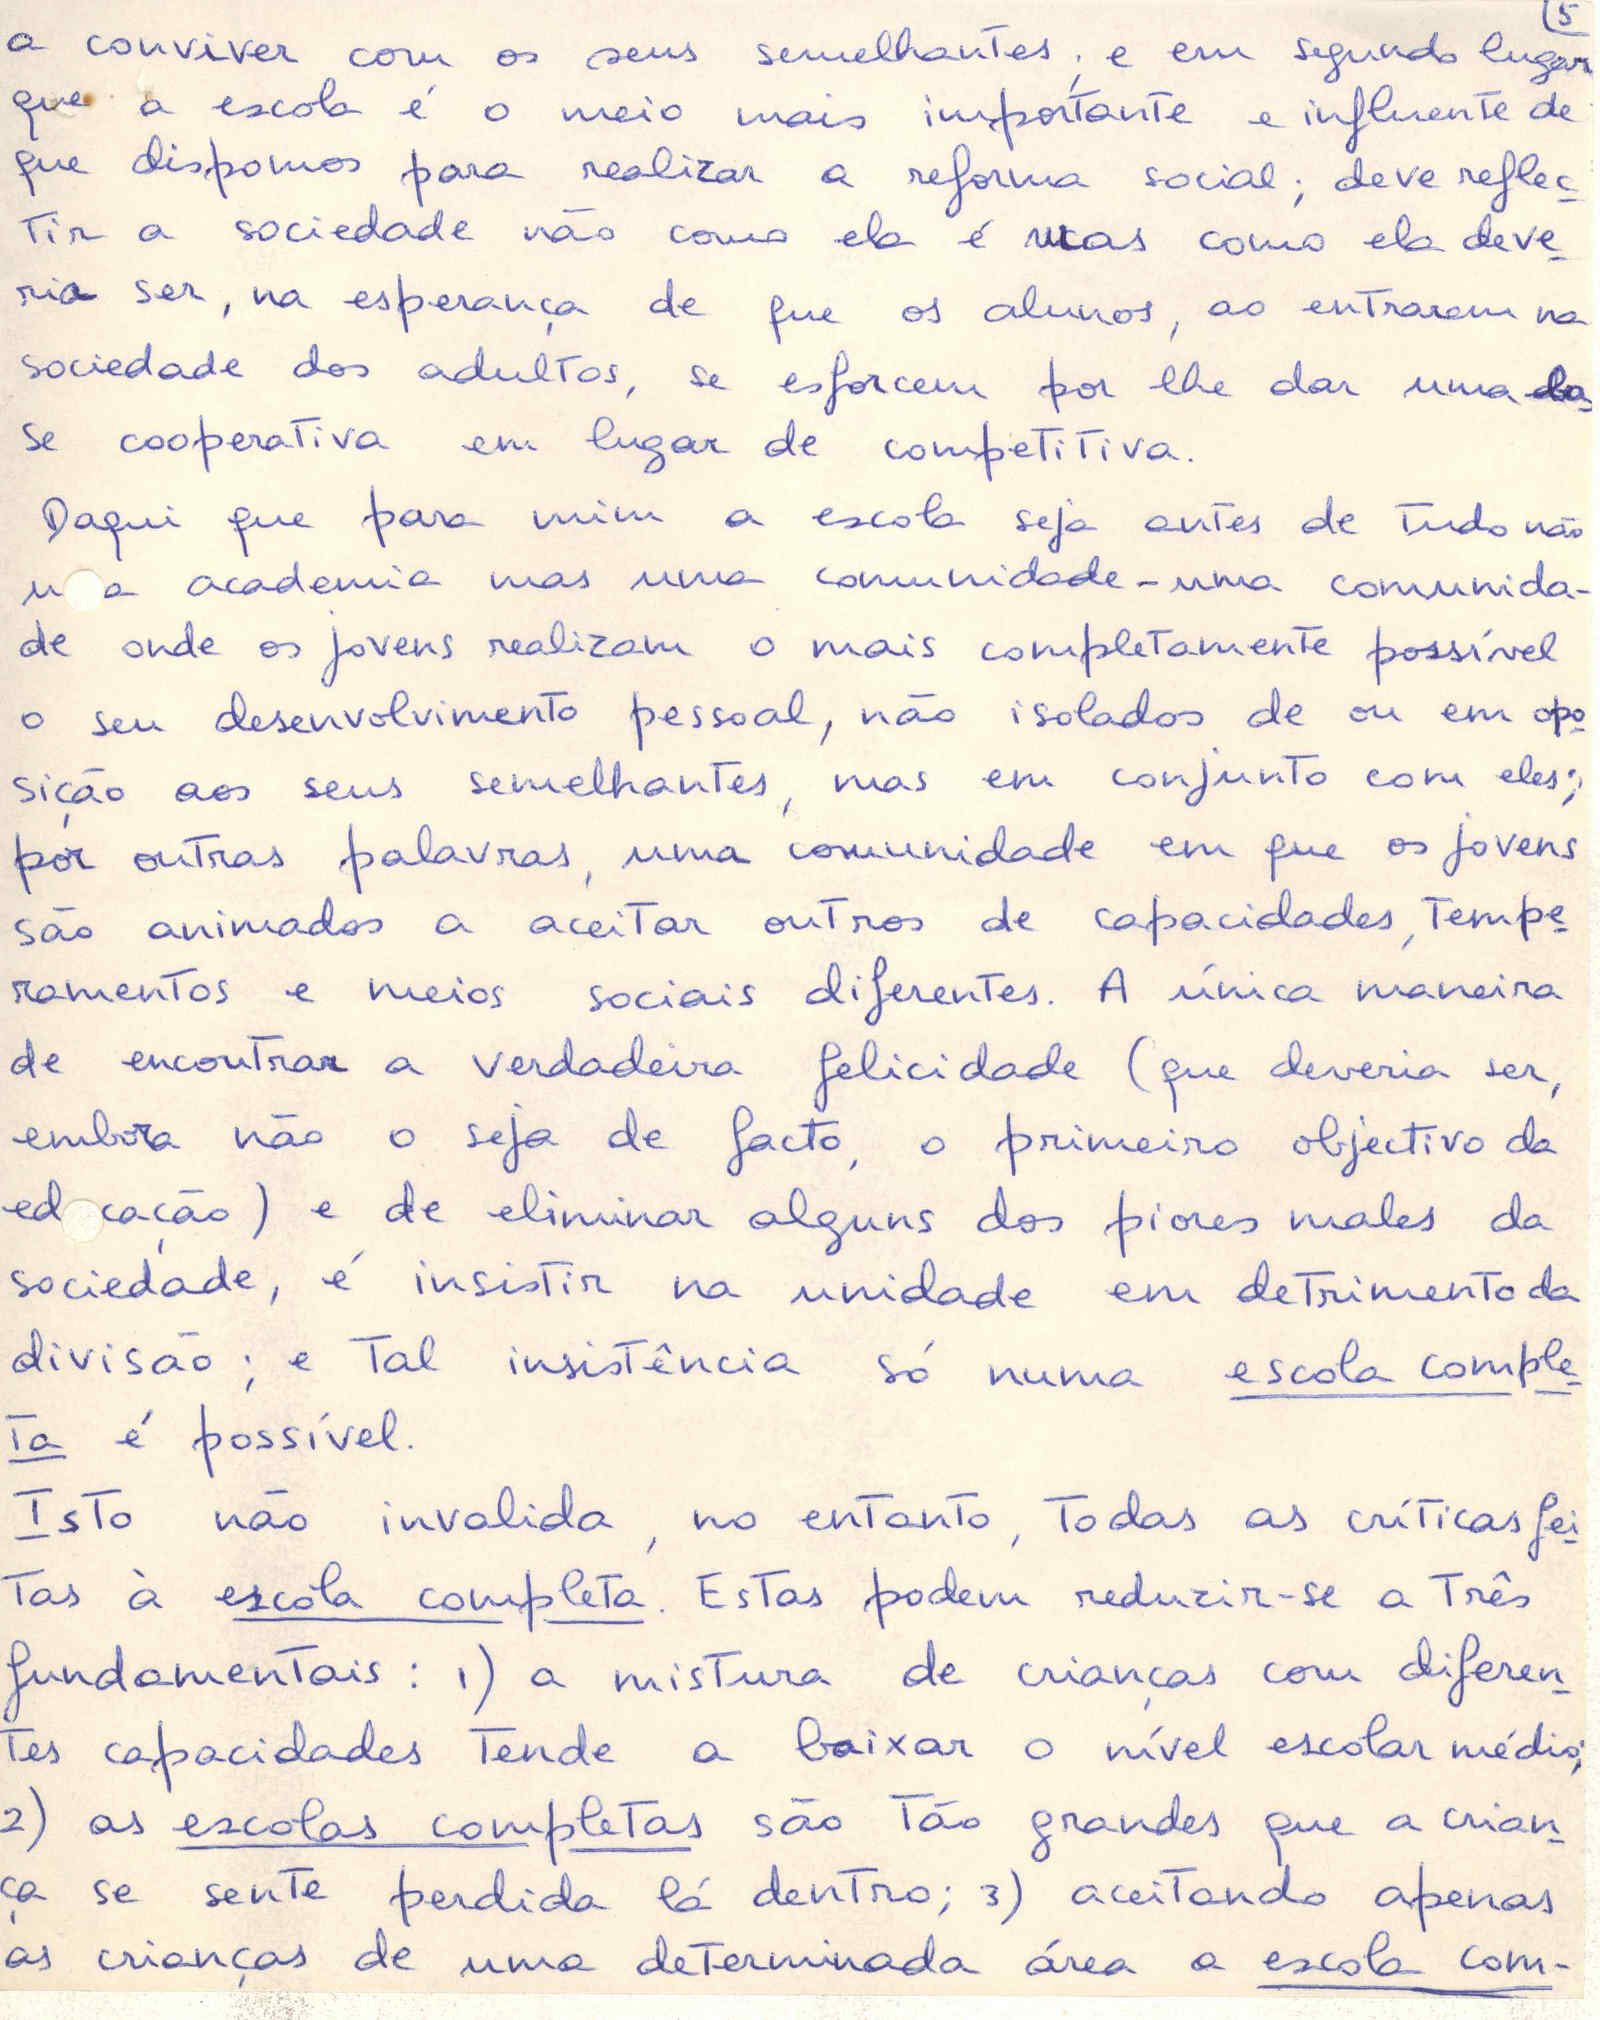 (5
a conviver com os seus semelhantes; e em segundo lugar
que a escola é o meio mais importante e influente de
que dispomos para realizar a reforma social; deve reflec-
tir a sociedade não como ela é mas como ela deve-
ria ser, na esperança de que os alunos, ao entrarem na
sociedade dos adultos, se esforcem por lhe dar uma ba-
se cooperativa em lugar de competitiva.
Daqui que para mim a escola seja antes de tudo não
u a academia mas uma comunidade - uma comunida-
de onde os jovens realizam o mais completamente possível
o seu desenvolvimento pessoal, não isolados de ou em opo-
sição aos seus semelhantes, mas em conjunto com eles;
por outras palavras, uma comunidade em que os jovens
são animados a aceitar outros de capacidades, tempe-
ramentos e meios sociais diferentes. A única maneira
de encontrar a verdadeira felicidade (que deveria ser,
embora não o seja de facto, o primeiro objectivo da
ed cação) e de eliminar alguns dos piores males da
sociedade, é insistir na unidade em detrimento da
divisão; e tal insistência só numa escola comple-
ta é possível.
Isto não invalida, no entanto, todas as críticas fei-
tas à escola completa. Estas podem reduzir-se a três
fundamentais: 1) a mistura de crianças com diferen-
tes capacidades tende a baixar o nível escolar médio;
2) as escolas completas são tão grandes que a crian-
ça se sente perdida lá dentro; 3) aceitando apenas
as crianças de uma determinada área a escola com-